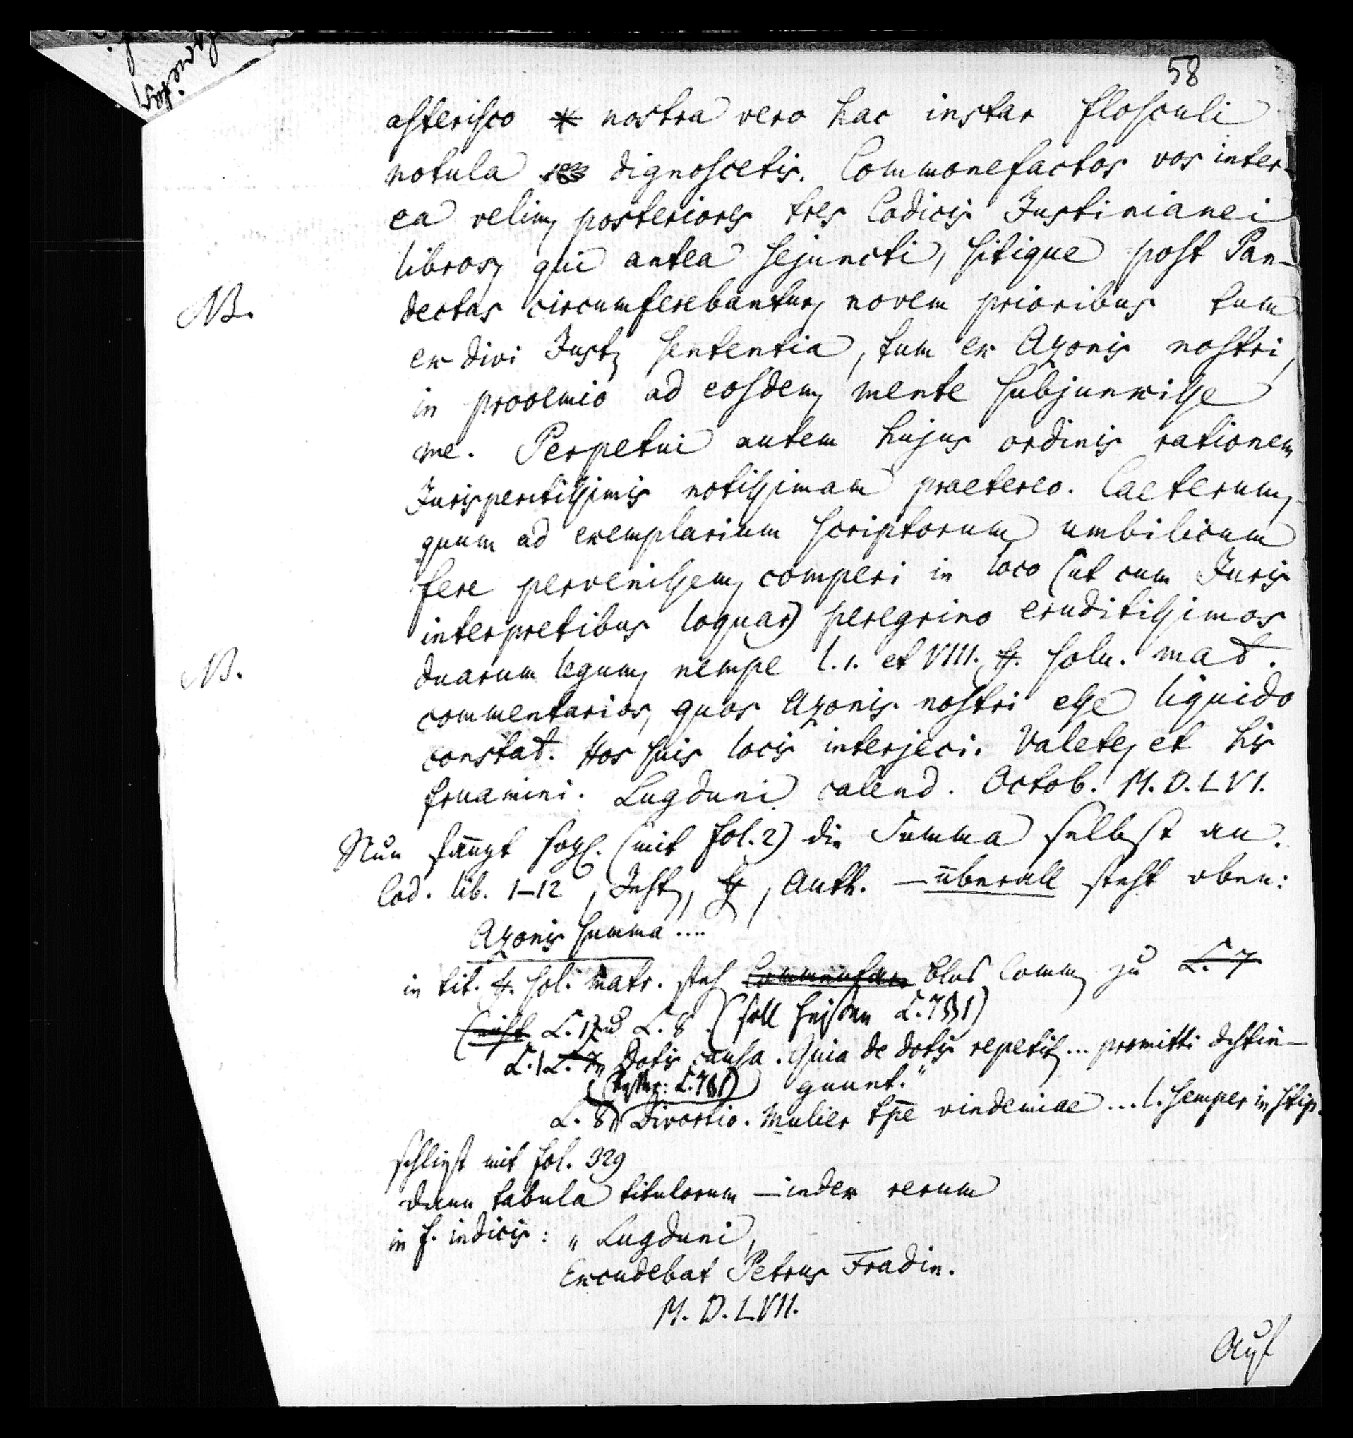 58
asterisco * nostra vero hac instar flosculi
notula dignoscetis. Commonefactos vos inter-
ea velim, posteriores tres Codicis Justinianei
libros, qui antea sejuncti, sitique post Pan-
NB. dectas circumferebantur, novem prioribus tum
ex divi Just. sententia, tum ex Azonis nostri,
in prooemio ad eosdem, mente subjunxisse
me. Perpetui autem hujus ordinis rationem
Jurisperitissimis notissimam praetereo. Caeterum,
quum ad exemplarium scriptorum umbilicum
fere pervenissem, comperi in loco (ut cum Juris
interpretibus loquar) peregrino eruditissimos
NB. duarum legum, nempe l. 1. et VIII. ff. solu. mat.
commentarios, quos Azonis nostri esse liquido
constat. Hos suis locis interjeci. Valete, et his
fruamini. Lugduni calend. Octob. M.D.LVI.
Nun fängt sogl. (mit fol. 2) die Summa selbst an.
Cod. lib. 1–12, Inst., ff, Auth. — überall steht oben:
Azonis summa ....
in tit. ff. sol. matr. steht Commentar blos Comm. zu L. 7
(nicht L. 1 und L. 8. (soll heissen L. 7 § 1)
L. 1 L. 7 Dotis causa. Quia de dotis repetit. ... promitti destin-
guunt."
L. 8 Divortio. Mulier tpe vindemiae ... l. semper in stip.
schliesst mit fol. 329
dann tabula titulorum — index rerum
in f. indicis: „Lugduni,
Excudebat Petrus Fradin.
M.D.LVII.
Auf